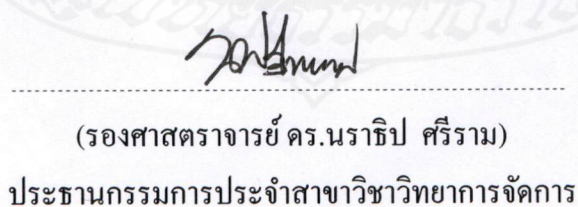 (รองศาสตราจารย์ ดร.นราธิป ศรีราม)
ประธานกรรมการประจำสาขาวิชาวิทยาการจัดการ